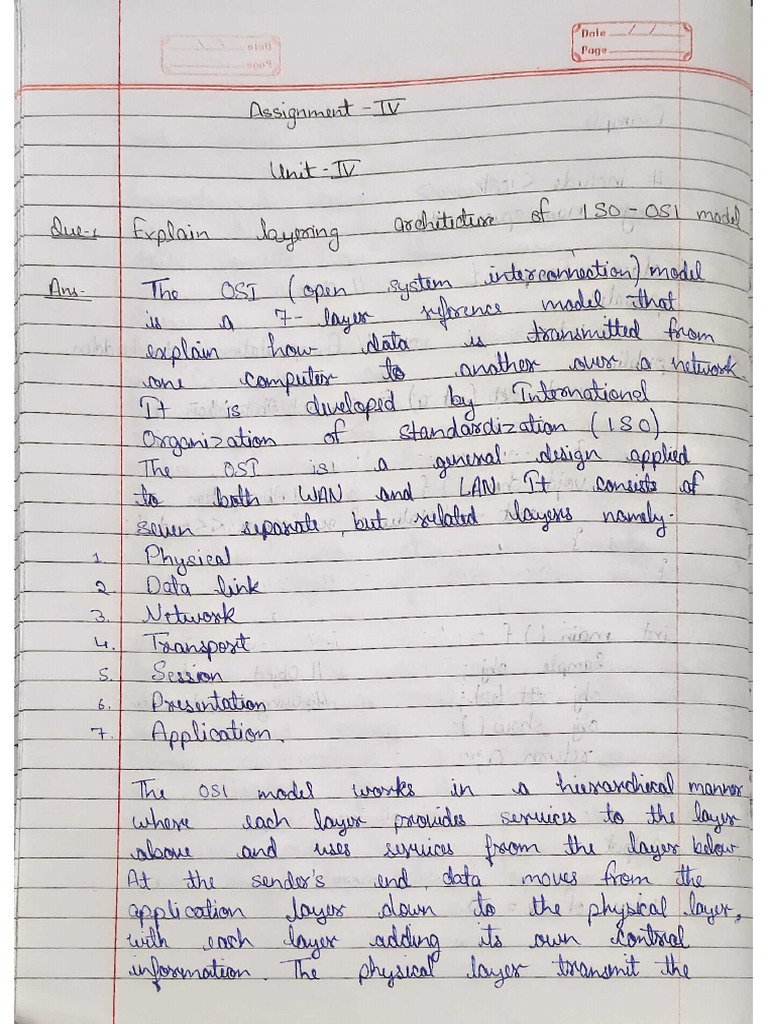 Date
Page
Assignment - IV
Unit - IV
Que-1 Explain layering architecture of ISO-OSI model
Ans- The OSI (open system interconnection) model
is a 7-layer reference model that
explain how data is transmitted from
one computer to another over a network.
It is developed by International
Organization of Standardization (ISO)
The OSI is a general design applied
to both WAN and LAN It consists of
seven separate, but related layers namely.
1. Physical
2. Data link
3. Network
4. Transport
5. Session
6. Presentation
7. Application.
The OSI model works in a hierarchical manner
where each layer provides services to the layer
above and uses services from the layer below.
At the sender's end, data moves from the
application layer down to the physical layer,
with each layer adding its own control
information. The physical layer transmit the